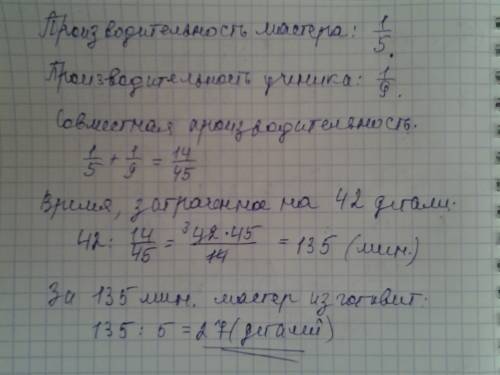 Производительность мастера: 1/5.
Производительность ученика: 1/9.
Совместная производительность.
1/5 + 1/9 = 14/45
Время, затраченное на 42 детали.
42 : 14/45 = ³42·45/14 = 135 (мин.)
За 135 мин. мастер изготовит.
135 : 5 = 27 (деталей)